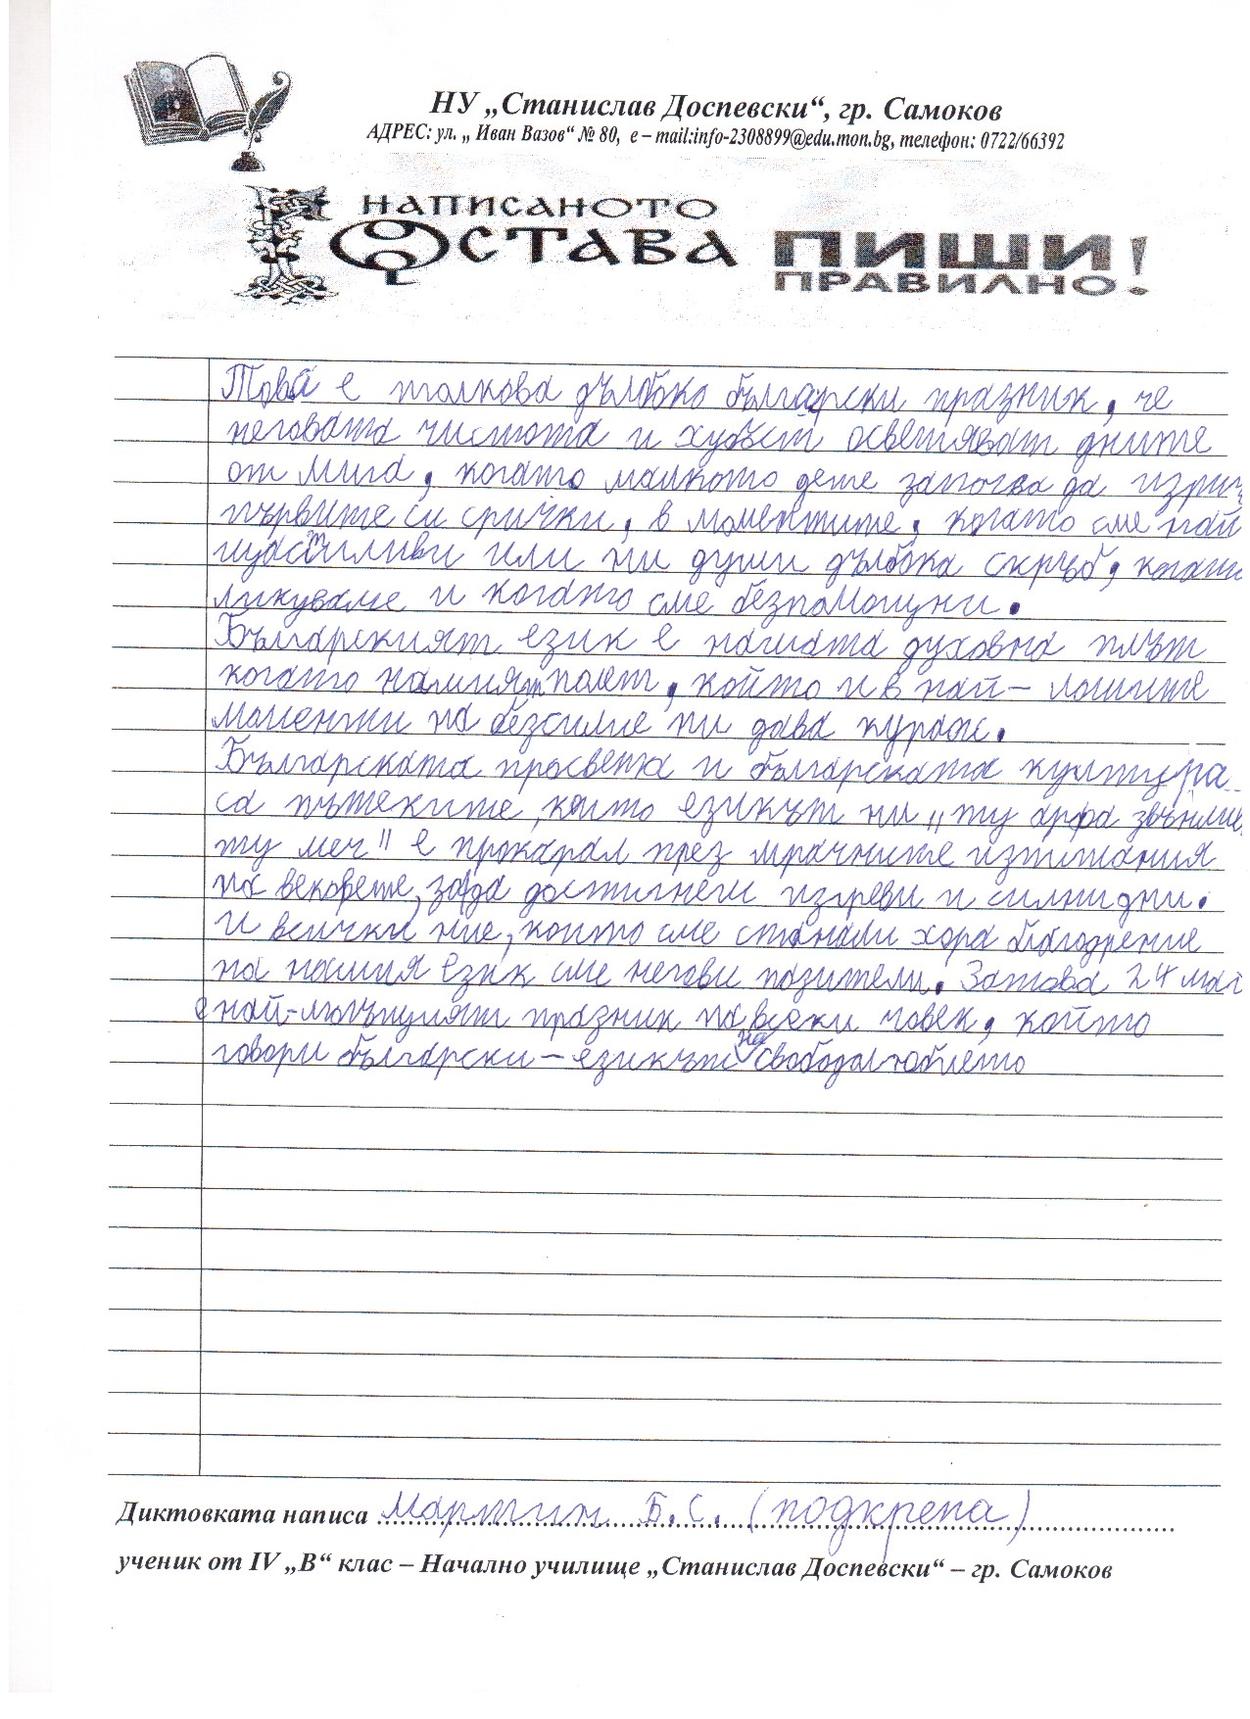 НУ „Станислав Доспевски“, гр. Самоков
АДРЕС: ул. „ Иван Вазов“ № 80, е – mail:info-2308899@edu.mon.bg, телефон: 0722/66392
НАПИСАНОТО
ОСТАВА ПИШИ
ПРАВИЛНО!
Това е толкова дълбоко български празник, че
неговата чистота и хубъст осветяват дните
от мига, когато малкото дете започва да изрич
първите си срички, в моментите, когато сме най
щастливи или ни души дълбока скръб, когато
ликуваме и когато сме безпомощни.
Българският език е нашата духовна плът
когато полет, който и в най – лошите
моменти на безсилие ни дава кураж.
Българската просвета и българската култура
са пътеките, които езикът ни „ту арфа звънлив,
ту меч" е прокарал през мрачните изпитания
на вековете, за да достигнем изгреви и силни дни.
И всички ние, които сме станали хора благодрение
на нашия език сме негови пазители. Затова 24 май
е най-могъщият празник на всеки човек, който
говори български – езикът на свободолюбието
Диктовката написа Мартин Б. С. (подкрепа)
ученик от IV „В“ клас – Начално училище „Станислав Доспевски“ – гр. Самоков